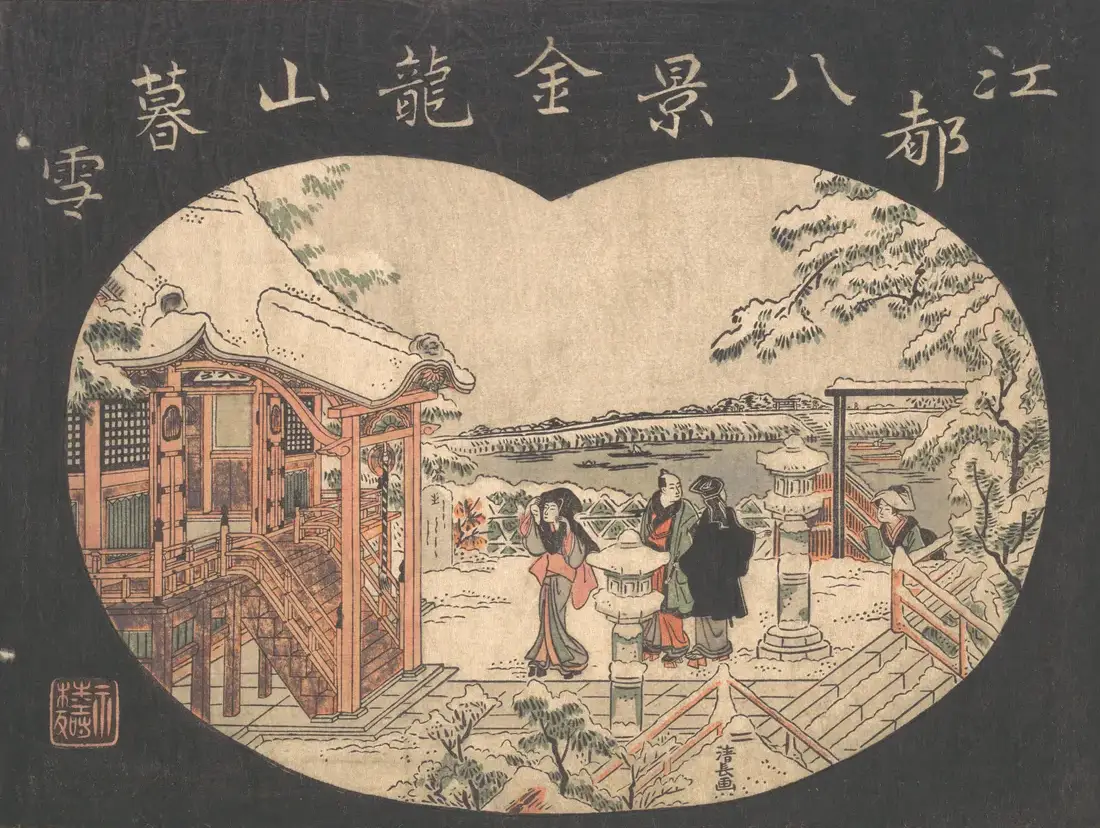 江都八景金龍山暮雪
清長画